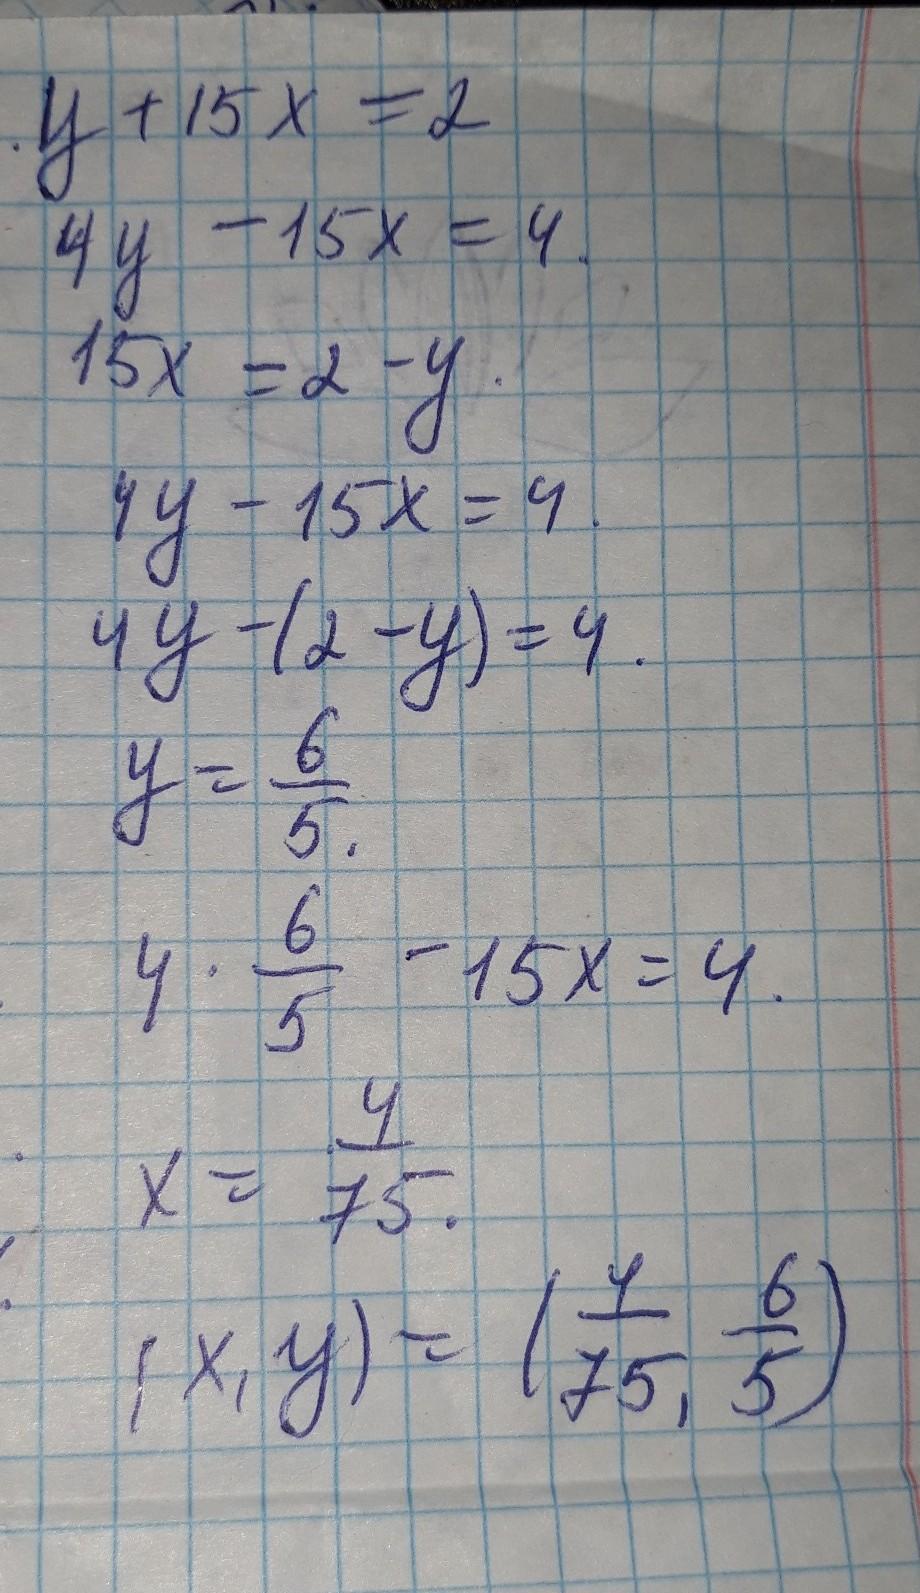 y + 15x = 2
4y - 15x = 4.
15x = 2 - y.
4y - 15x = 4.
4y - (2 - y) = 4.
y = 6/5.
4 · 6/5 - 15x = 4.
x = 4/75.
(x, y) = (4/75, 6/5)